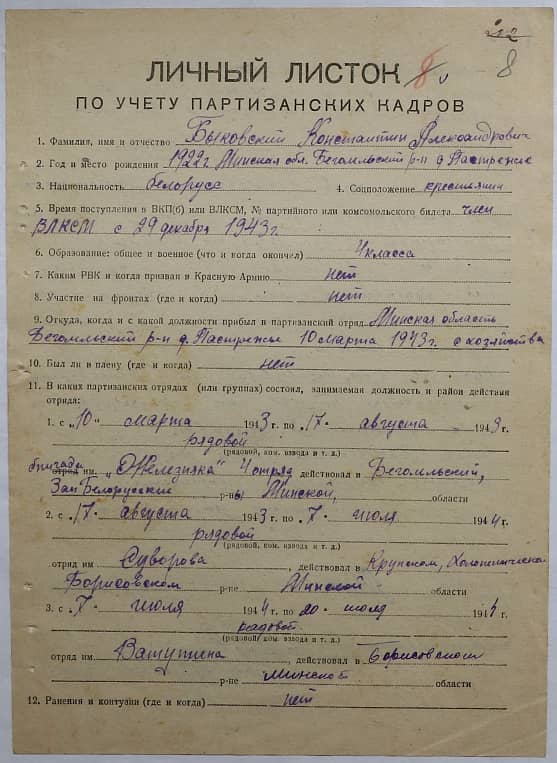 8
8
ЛИЧНЫЙ ЛИСТОК
ПО УЧЕТУ ПАРТИЗАНСКИХ КАДРОВ
1. Фамилия, имя и отчество Быковский Константин Александрович
2. Год и место рождения 1922г. Минская обл. Бегомльский р-н д. Пастрежье
3. Национальность белорусс 4. Соцположение крестьянин
5. Время поступления в ВКП(б) или ВЛКСМ, № партийного или комсомольского билета член
ВЛКСМ с 29 декабря 1943г.
6. Образование: общее и военное (что и когда окончил) 4 класса
7. Каким РВК и когда призван в Красную Армию нет
8. Участие на фронтах (где и когда) нет
9. Откуда, когда и с какой должности прибыл в партизанский отряд Минская область
Бегомльский р-н д. Пастрежье 10 марта 1943г. с хозяйства
10. Был ли в плену (где и когда) нет
11. В каких партизанских отрядах (или группах) состоял, занимаемая должность и район действия
отряда:
1. с „10" марта 1943 г. по 17 августа 1943 г.
рядовой
(рядовой, ком. взвода и т. д.)
бригады отряд им. „Железняка" 4 отряд действовал в Бегомльский,
Зап Белорусский р-не Минской, области
2. с 17 августа 1943 г. по 7 июля 1944 г.
рядовой
(рядовой, ком. взвода и т. д.)
отряд им Суворова, действовал в Крупском, Холопеническом
Борисовском р-не Минской области
3. с 7 июля 1944 г. по 20 июля 1944 г.
рядовой
(рядовой, ком. взвода и т. д.)
отряд им. Ватутина, действовал в Борисовском
р-не Минской области
12. Ранения и контузии (где и когда) нет